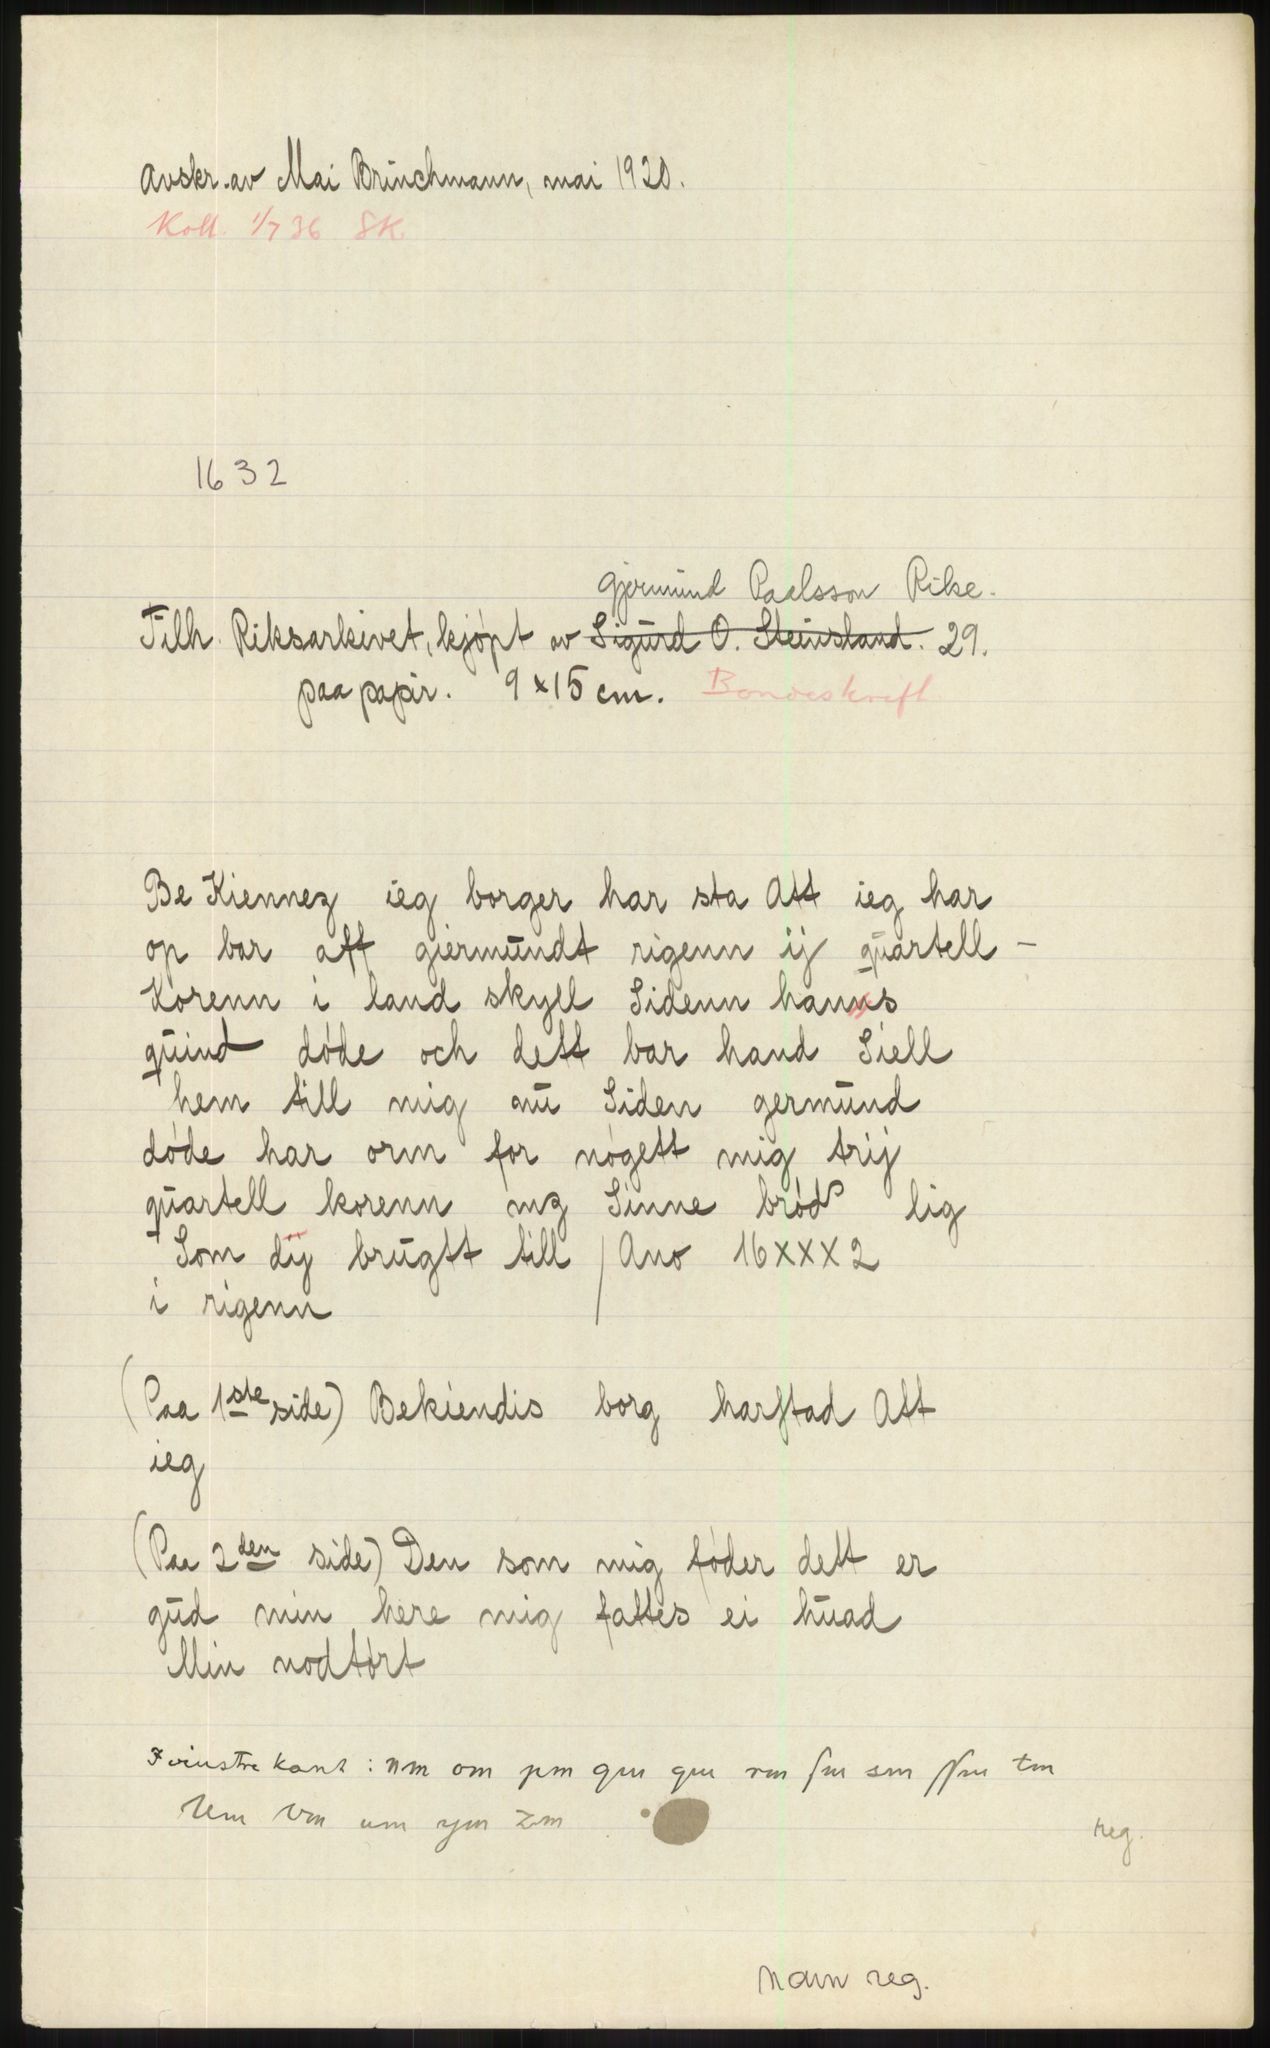 Avskr. av Mai Brinchmann, mai 1920.
Koll. 1/7 36 SK.
1632
Gjermund Paalsson Rike.
Tilh. Riksarkivet, kjøpt av Sigurd O. Steinsland. 29.
paa papir. 9 x 15 cm. Bondeskrift
Be Kiennez ieg borger har sta Att ieg har
op bar aff giermundt rigenn ij quartell –
Korenn i land skyll Sidenn hanns
quind døde och dett bar hand Siell
hem till mig nu Siden germund
døde har orm for nøgett mig trij
quartell korenn mz Sinne brød lig
Som dij brugtt till / Ano 16xxx2
i rigenn
(Paa 1ste side) Bekiendis borg harstad Att
ieg
(Paa 2den side) Den som mig føder dett er
gud min here mig fattes ei huad
Min nodtørt
I vinstre kant: nm om pm qm qm rm sm sm ssm tm
um vm um ym zm
reg.
navn reg.